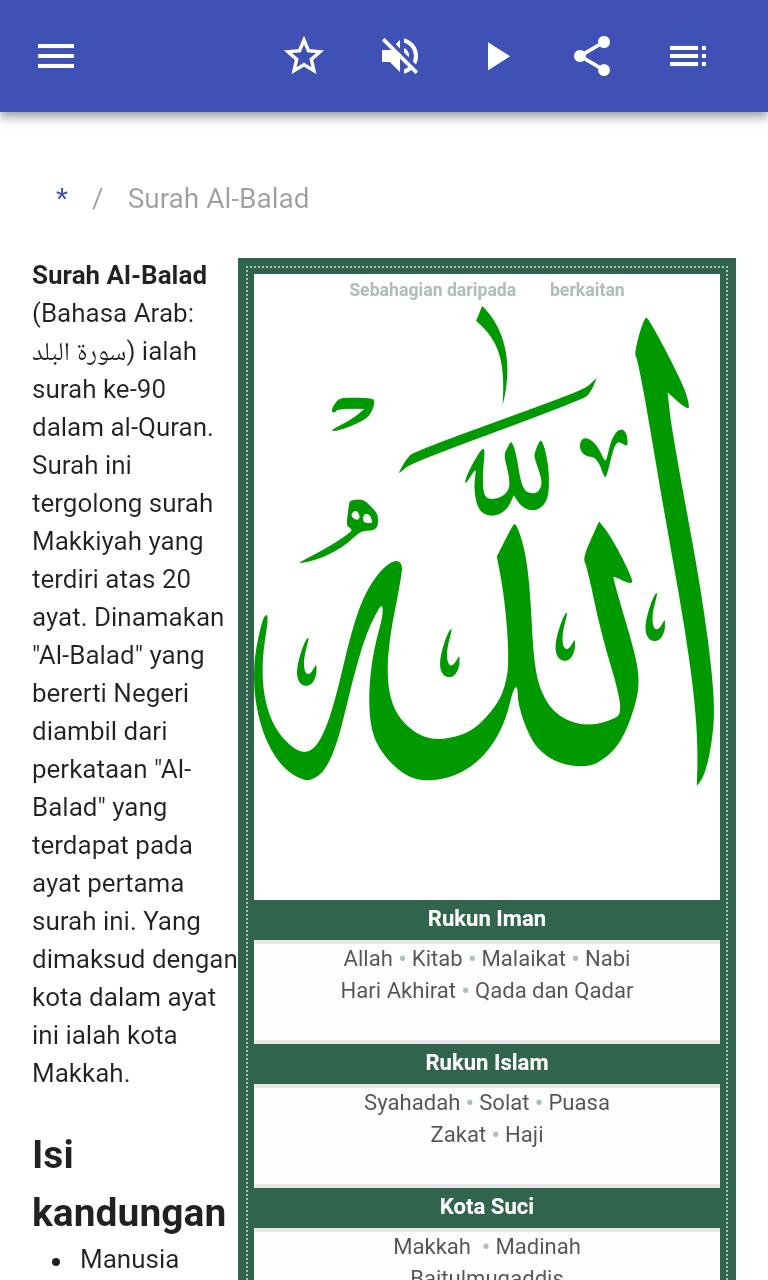 * / Surah Al-Balad
Surah Al-Balad
(Bahasa Arab:
سورة البلد) ialah
surah ke-90
dalam al-Quran.
Surah ini
tergolong surah
Makkiyah yang
terdiri atas 20
ayat. Dinamakan
"Al-Balad" yang
bererti Negeri
diambil dari
perkataan "Al-
Balad" yang
terdapat pada
ayat pertama
surah ini. Yang
dimaksud dengan
kota dalam ayat
ini ialah kota
Makkah.
Isi
kandungan
• Manusia
Sebahagian daripada berkaitan
الله
Rukun Iman
Allah • Kitab • Malaikat • Nabi
Hari Akhirat • Qada dan Qadar
Rukun Islam
Syahadah • Solat • Puasa
Zakat • Haji
Kota Suci
Makkah • Madinah
Baitulmuqaddis